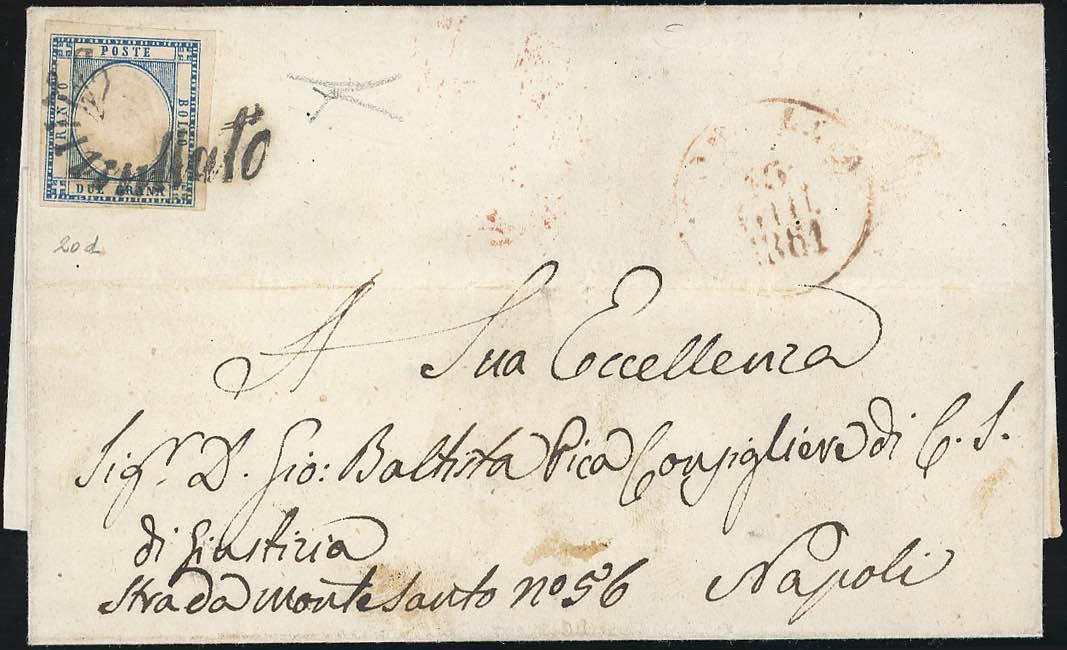 POSTE
FRANCO
BOLLO
DUE GRANA
Annullato
20d
18
LUG
1861
A Sua Eccellenza
Sigr. D. Gio: Battista Pica Consigliere di C. S.
di Giustizia
Strada Montesanto no 56
Napoli